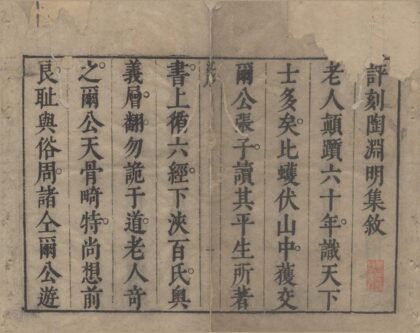 評刻陶淵明集敘
老人顛躓六十年識天下
士多矣比蠖伏山中獲交
爾公張子讀其平生所著
書上循六經下浹百氏奥
義層翻勿詭于道老人竒
之爾公天骨畸特尚想前
良耻與俗周諸仝爾公遊